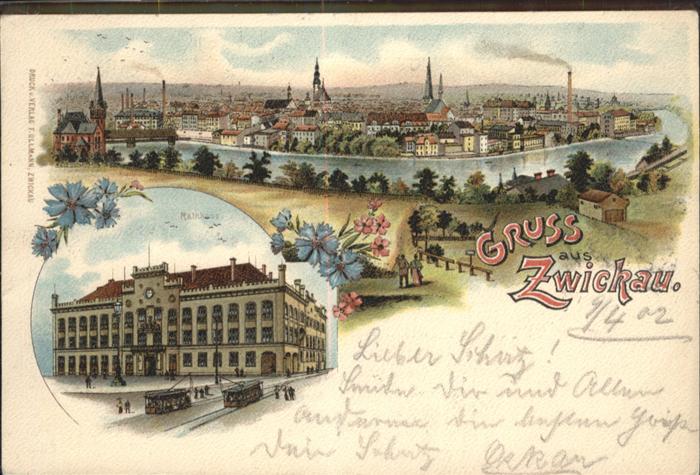 DRUCK u. VERLAG F. ULLMANN, ZWICKAU
Rathhaus
GRUSS
aus
Zwickau.
9/4 02
Lieber Schatz!
Sende Dir und Allen
Anderen die besten Grüße
Dein Schatz Oskar